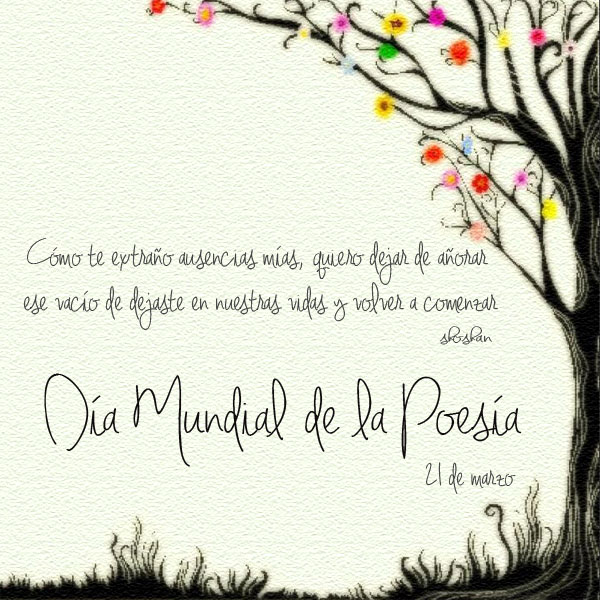 Cómo te extraño ausencias mías, quiero dejar de añorar
ese vacío de dejaste en nuestras vidas y volver a comenzar
skoskan
Día Mundial de la Poesía
21 de marzo